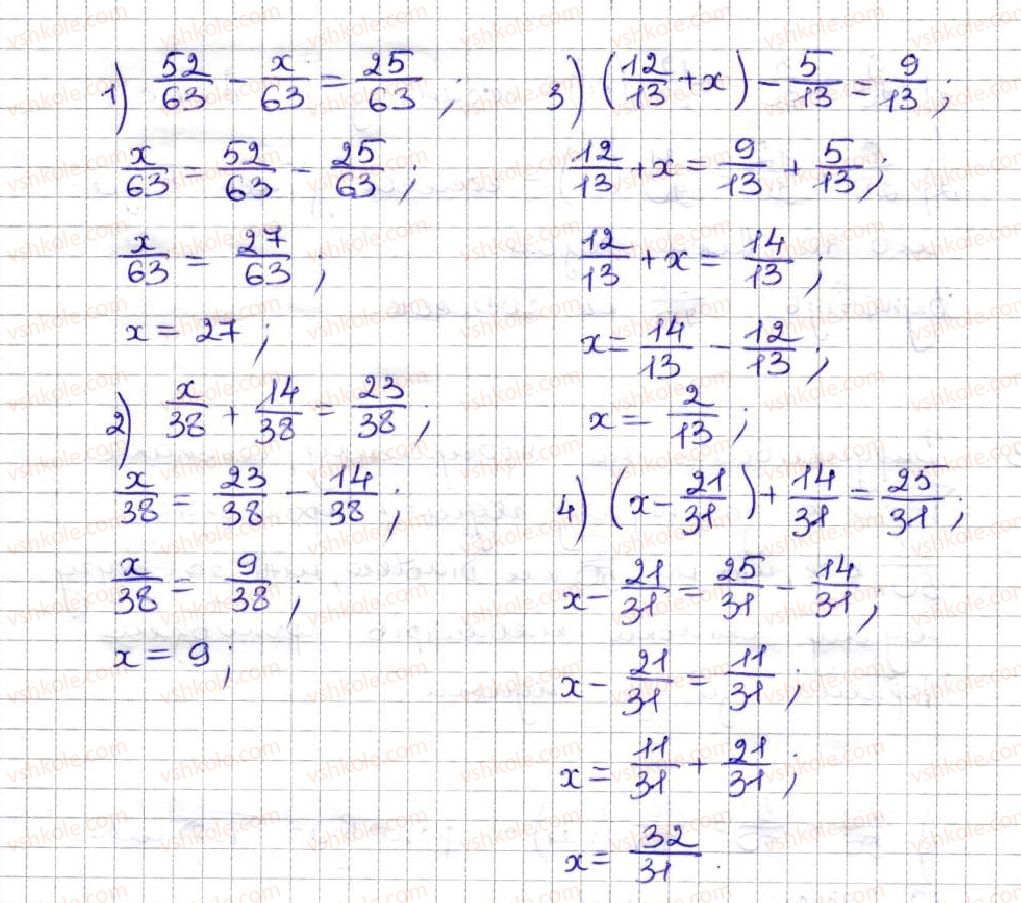 1) 52/63 - x/63 = 25/63;
x/63 = 52/63 - 25/63;
x/63 = 27/63;
x = 27;
2) x/38 + 14/38 = 23/38;
x/38 = 23/38 - 14/38;
x/38 = 9/38;
x = 9;
3) (12/13 + x) - 5/13 = 9/13;
12/13 + x = 9/13 + 5/13;
12/13 + x = 14/13;
x = 14/13 - 12/13;
x = 2/13;
4) (x - 21/31) + 14/31 = 25/31;
x - 21/31 = 25/31 - 14/31;
x - 21/31 = 11/31;
x = 11/31 + 21/31;
x = 32/31.
vshkole.com